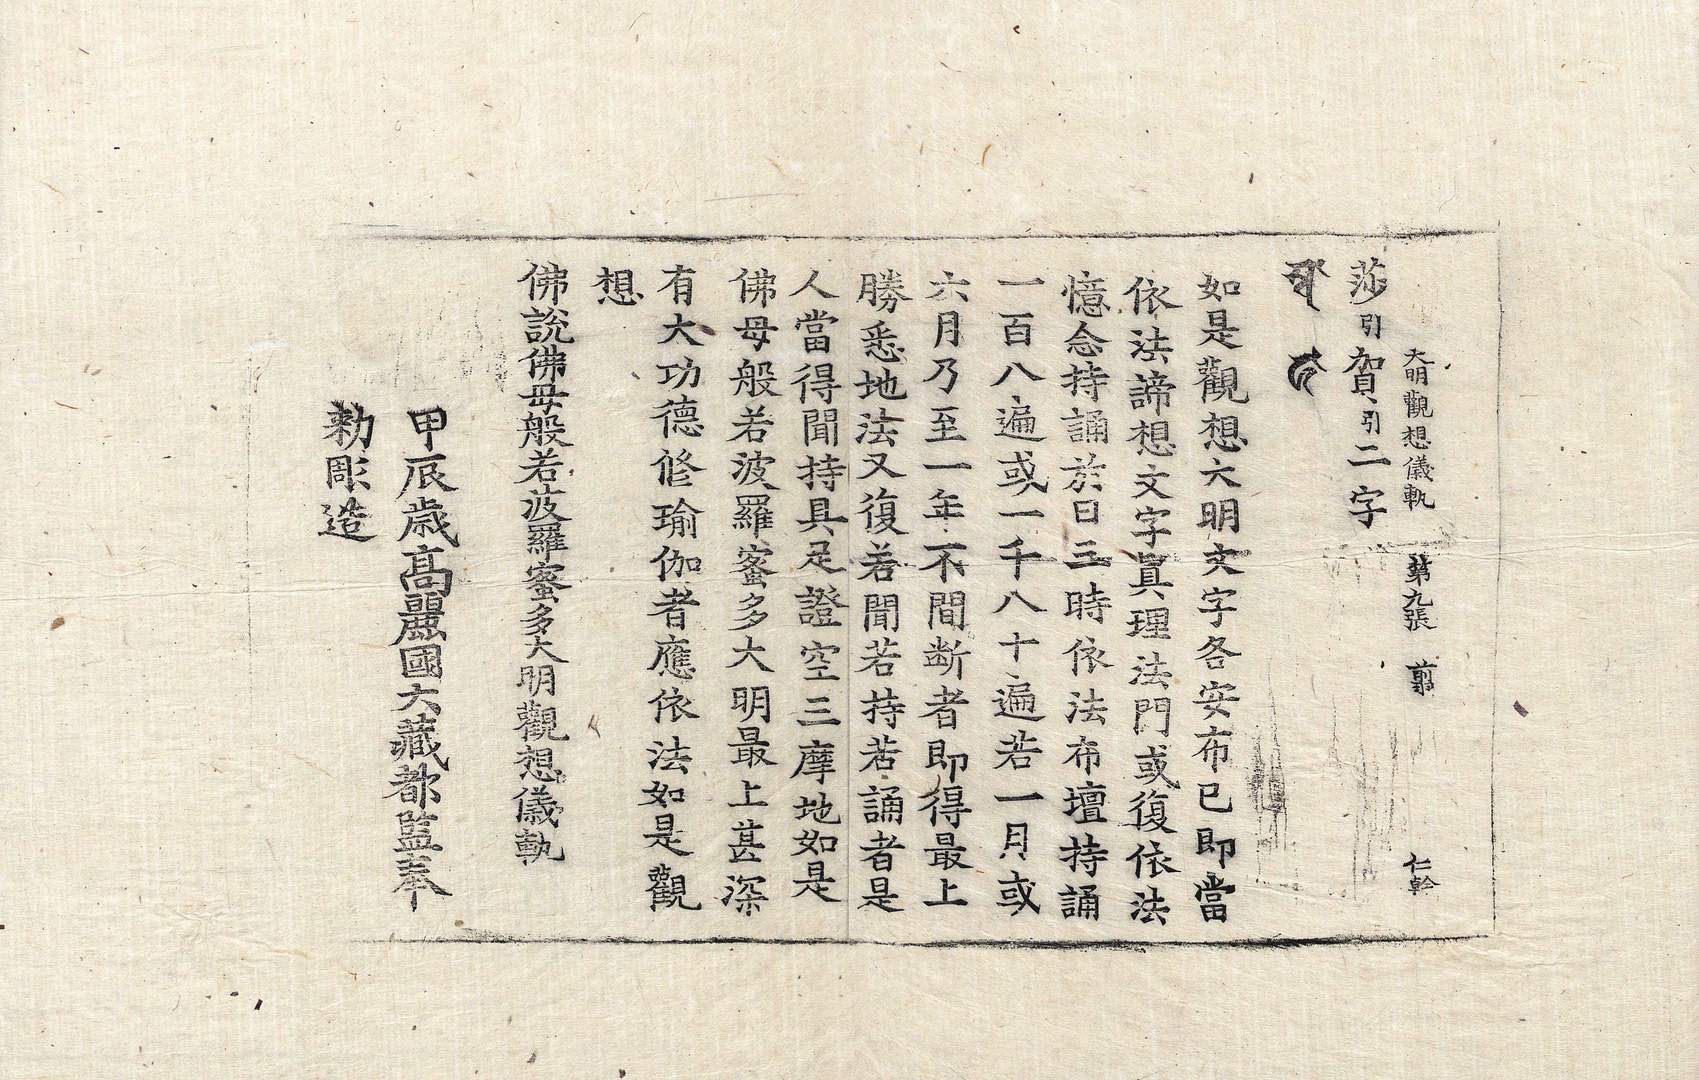 大明觀想儀軌 第九張 翦 仁幹
莎引賀引二字
如是觀想大明文字各安布已即當
依法諦想文字真理法門或復依法
憶念持誦於日三時依法布壇持誦
一百八遍或一千八十遍若一月或
六月乃至一年不間断者即得最上
勝悉地法又復若聞若持若誦者是
人當得聞持具足證空三摩地如是
佛母般若波羅蜜多大明最上甚深
有大功德修瑜伽者應依法如是觀
想
佛說佛母般若波羅蜜多大明觀想儀軌
甲辰歲高麗國大藏都監奉
勅彫造